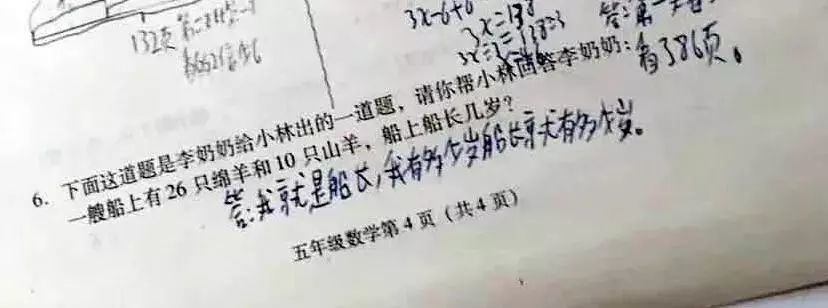 132页
3x-6+6
3x=138
3x÷3=138÷3
有386页。
6. 下面这道题是李奶奶给小林出的一道题,请你帮小林回答李奶奶:
一艘船上有26只绵羊和10只山羊,船上船长几岁?
答:我就是船长,我有多少岁船长就有多少岁。
五年级数学第4页(共4页)